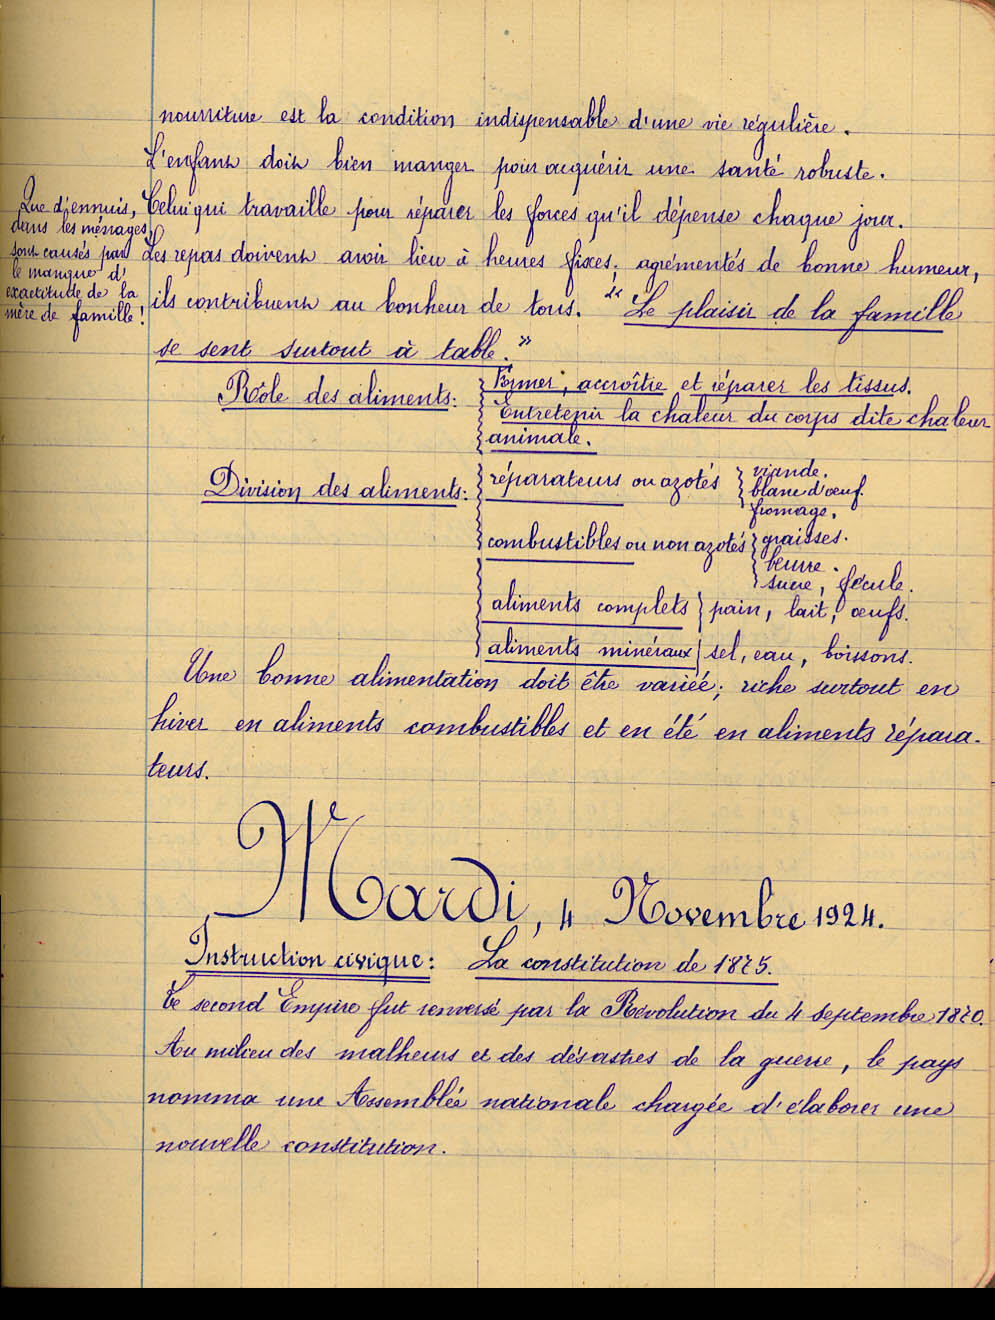 nourriture est la condition indispensable d'une vie régulière.
L'enfant doit bien manger pour acquérir une santé robuste.
Celui qui travaille pour réparer les forces qu'il dépense chaque jour.
Les repas doivent avoir lieu à heures fixes; agrémentés de bonne humeur,
ils contribuent au bonheur de tous. "Le plaisir de la famille
se sent surtout à table."
Que d'ennuis,
dans les ménages
sont causés par
le manque d'
exactitude de la
mère de famille!
Rôle des aliments:
Former, accroître et réparer les tissus.
Entretenir la chaleur du corps dite chaleur
animale.
Division des aliments:
réparateurs ou azotés
viande.
blanc d'oeuf.
fromage.
combustibles ou non azotés
graisses.
beurre.
sucre, fécule.
aliments complets } pain, lait, oeufs.
aliments minéraux | sel, eau, boissons.
Une bonne alimentation doit être variée; riche surtout en
hiver en aliments combustibles et en été en aliments répara-
teurs.
Mardi, 4 Novembre 1924.
Instruction civique: La constitution de 1875.
Le second Empire fut renversé par la Révolution du 4 septembre 1870.
Au milieu des malheurs et des désastres de la guerre, le pays
nomma une Assemblée nationale chargée d'élaborer une
nouvelle constitution.